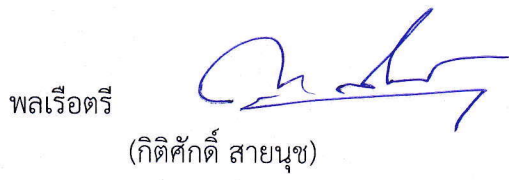 พลเรือตรี
(กิติศักดิ์ สายนุช)